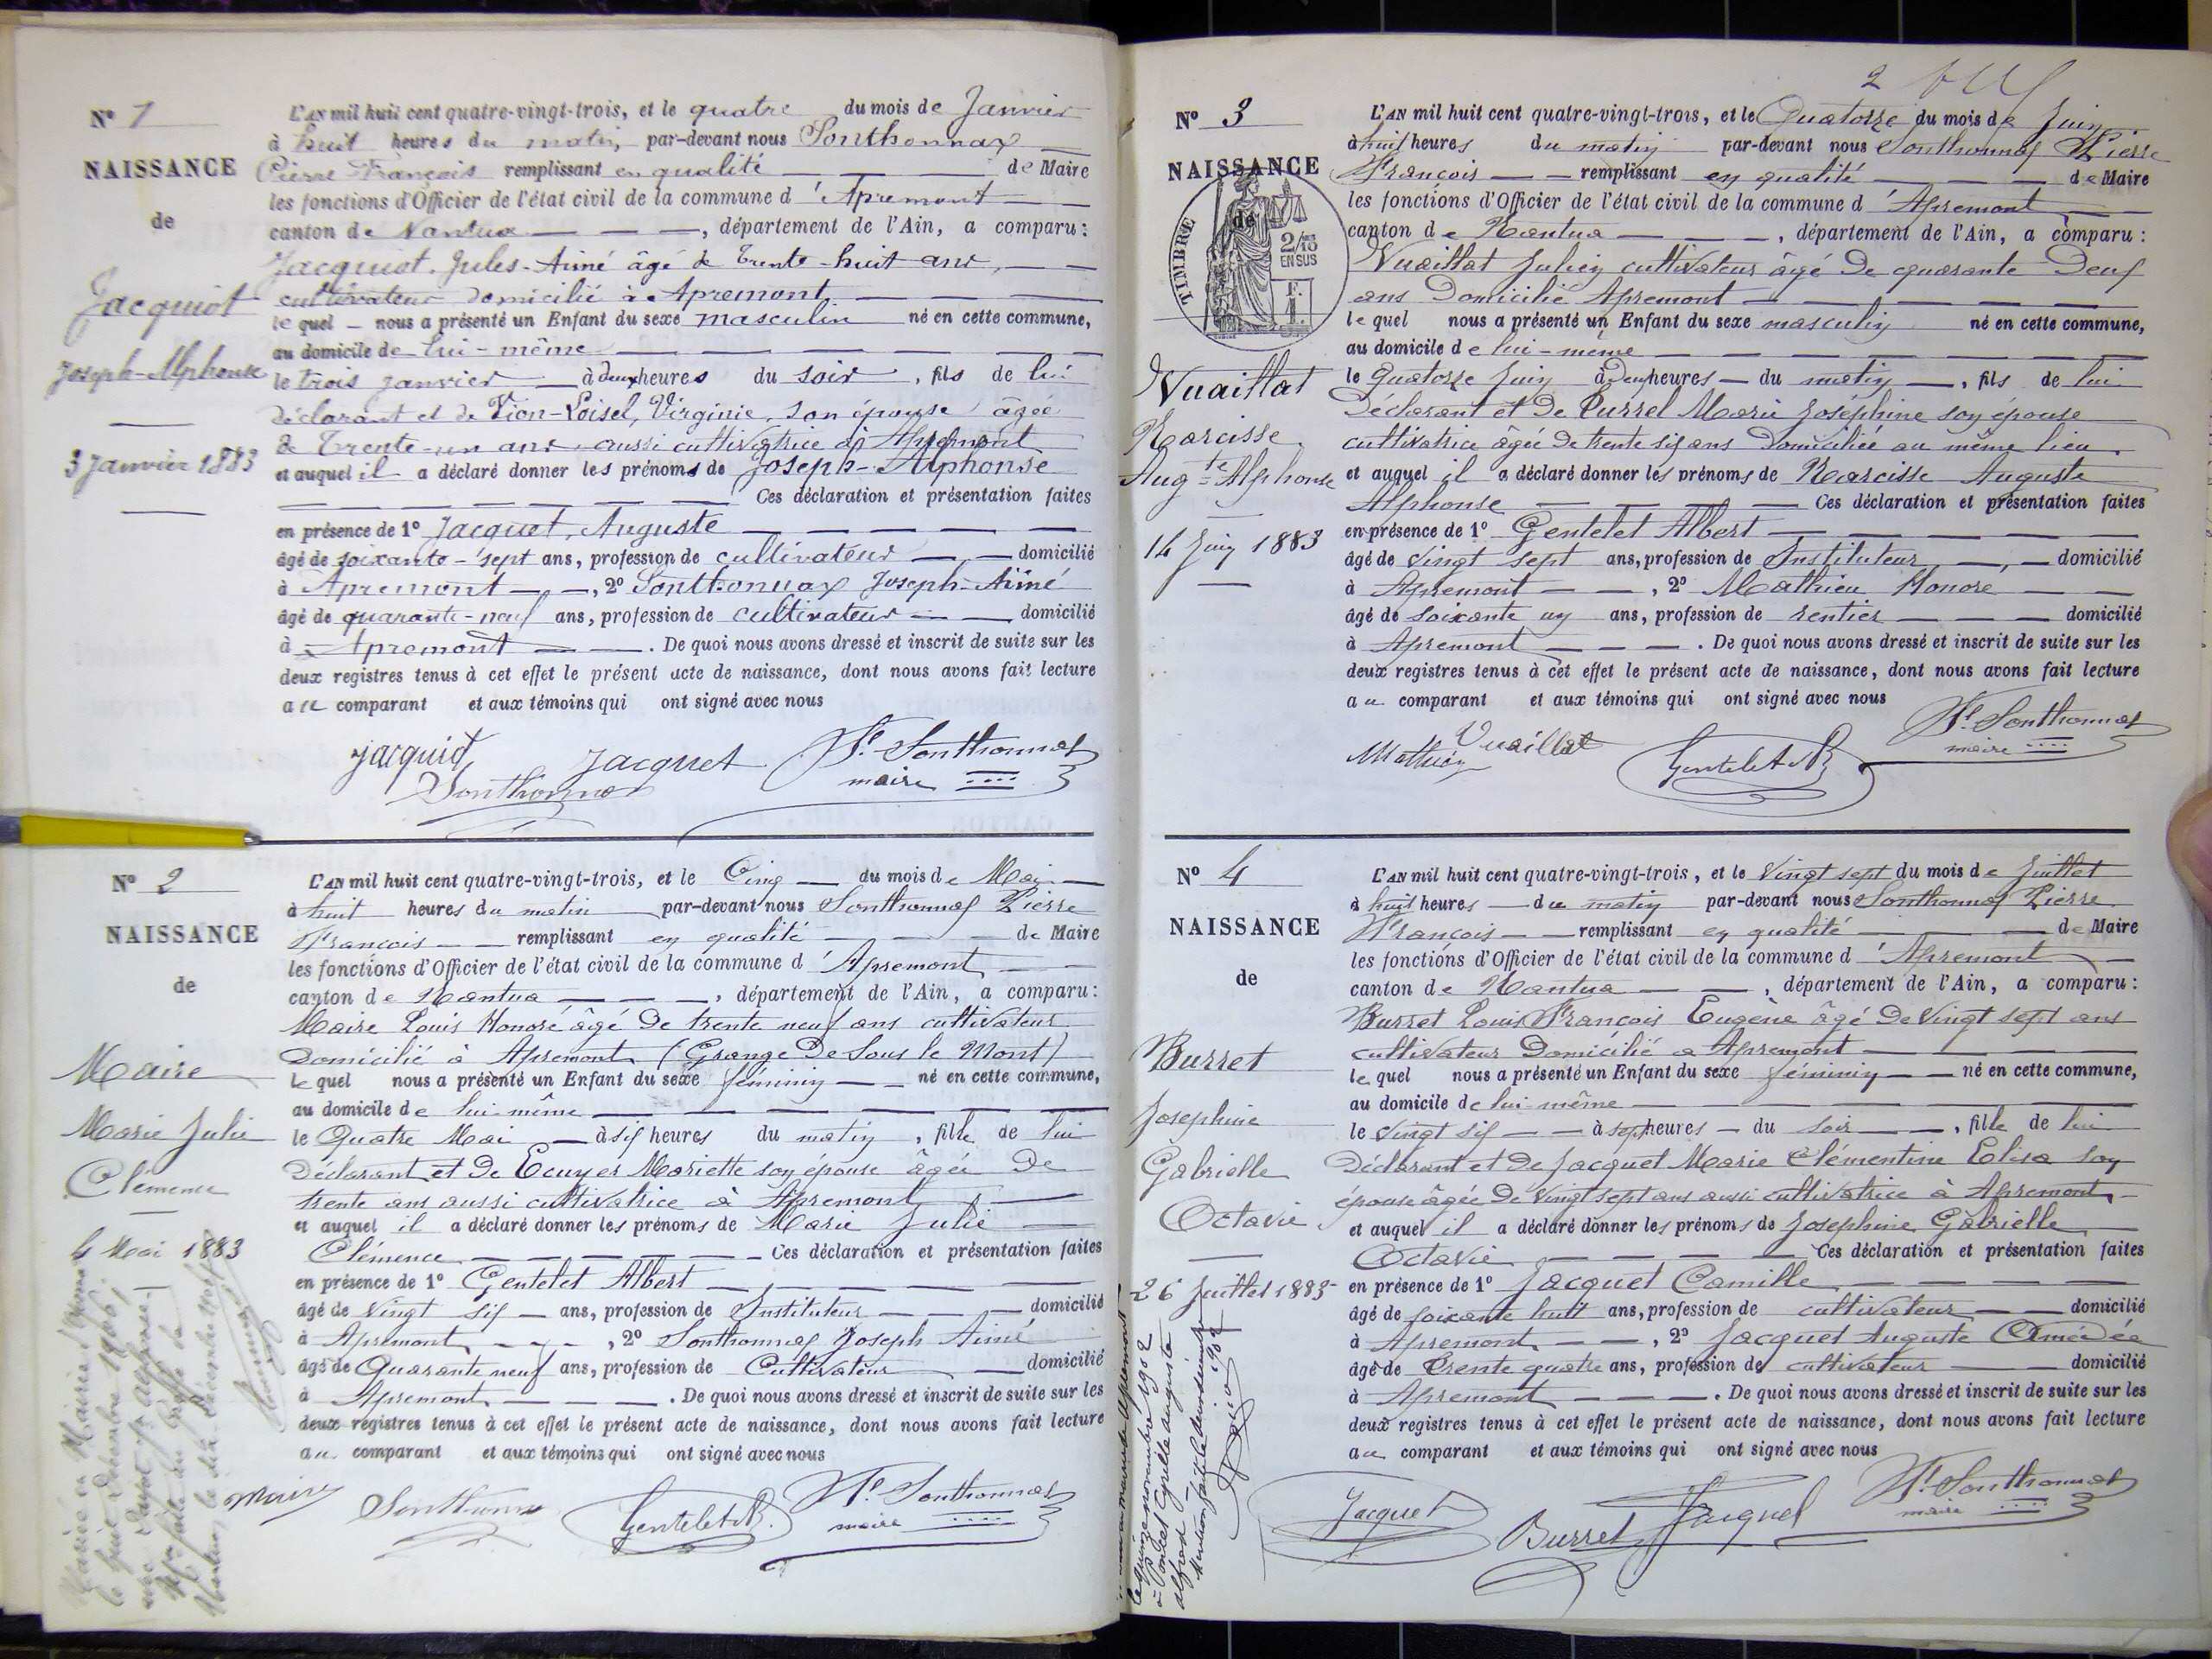 Nº 1
NAISSANCE
de
Jacquiot
Joseph-Alphonse
3 Janvier 1883
L'AN mil huit cent quatre-vingt-trois, et le quatre du mois de Janvier
à huit heures du matin, par-devant nous Sonthonnax
Pierre François remplissant en qualité de Maire
les fonctions d'Officier de l'état civil de la commune d'Apremont
canton de Nantua, département de l'Ain, a comparu :
Jacquiot, Jules-Aimé âgé de trente-huit ans,
cultivateur domicilié à Apremont
lequel nous a présenté un Enfant du sexe masculin né en cette commune,
au domicile de lui-même
le trois janvier à deux heures du soir, fils de lui
déclarant et de Vion-Loisel, Virginie, son épouse âgée
de trente-un ans aussi cultivatrice à Apremont
et auquel il a déclaré donner les prénoms de Joseph-Alphonse
Ces déclaration et présentation faites
en présence de 1º Jacquet, Auguste
âgé de soixante-sept ans, profession de cultivateur domicilié
à Apremont, 2º Sonthonnax Joseph-Aimé
âgé de quarante-neuf ans, profession de cultivateur domicilié
à Apremont. De quoi nous avons dressé et inscrit de suite sur les
deux registres tenus à cet effet le présent acte de naissance, dont nous avons fait lecture
au comparant et aux témoins qui ont signé avec nous
Jacquiot Jacquet Sonthonnax
Sonthonnax maire
Nº 2
NAISSANCE
de
Maire
Marie Julie
Clémence
4 Mai 1883
L'AN mil huit cent quatre-vingt-trois, et le Cinq du mois de Mai
à huit heures du matin par-devant nous Sonthonnax Pierre
François remplissant en qualité de Maire
les fonctions d'Officier de l'état civil de la commune d'Apremont
canton de Nantua, département de l'Ain, a comparu :
Maire Louis Honoré âgé de trente neuf ans cultivateur
domicilié à Apremont (Grange de Sous le Mont)
lequel nous a présenté un Enfant du sexe féminin né en cette commune,
au domicile de lui-même
le Quatre Mai à six heures du matin, fille de lui
déclarant et de Ecuyer Mariette son épouse âgée de
trente ans aussi cultivatrice à Apremont
et auquel il a déclaré donner les prénoms de Marie Julie
Clémence Ces déclaration et présentation faites
en présence de 1º Gentelet Albert
âgé de vingt six ans, profession de Instituteur domicilié
à Apremont, 2º Sonthonnax Joseph Aimé
âgé de Quarante neuf ans, profession de Cultivateur domicilié
à Apremont. De quoi nous avons dressé et inscrit de suite sur les
deux registres tenus à cet effet le présent acte de naissance, dont nous avons fait lecture
au comparant et aux témoins qui ont signé avec nous
Maire Sonthonnax Gentelet A. Sonthonnax
maire
2
Nº 3
NAISSANCE
de
TIMBRE
2/10
EN SUS
F.
1
Vuaillat
Narcisse
Aug.te Alphonse
14 Juin 1883
L'AN mil huit cent quatre-vingt-trois, et le Quatorze du mois de Juin
à huit heures du matin par-devant nous Sonthonnax Pierre
François remplissant en qualité de Maire
les fonctions d'Officier de l'état civil de la commune d'Apremont
canton de Nantua, département de l'Ain, a comparu :
Vuaillat Julien cultivateur âgé de quarante deux
ans domicilié Apremont
lequel nous a présenté un Enfant du sexe masculin né en cette commune,
au domicile de lui-même
le Quatorze Juin à deux heures du matin, fils de lui
déclarant et de Burret Marie Joséphine son épouse
cultivatrice âgée de trente six ans domiciliée au même lieu.
et auquel il a déclaré donner les prénoms de Narcisse Auguste
Alphonse Ces déclaration et présentation faites
en présence de 1º Gentelet Albert
âgé de vingt sept ans, profession de Instituteur, domicilié
à Apremont, 2º Mathieu Honoré
âgé de soixante un ans, profession de rentier domicilié
à Apremont. De quoi nous avons dressé et inscrit de suite sur les
deux registres tenus à cet effet le présent acte de naissance, dont nous avons fait lecture
au comparant et aux témoins qui ont signé avec nous
Mathieu Vuaillat Gentelet A. Sonthonnax
maire
Nº 4
NAISSANCE
de
Burret
Josephine
Gabrielle
Octavie
26 Juillet 1883
L'AN mil huit cent quatre-vingt-trois, et le vingt sept du mois de Juillet
à huit heures du matin par-devant nous Sonthonnax Pierre
François remplissant en qualité de Maire
les fonctions d'Officier de l'état civil de la commune d'Apremont
canton de Nantua, département de l'Ain, a comparu :
Burret Louis François Eugène âgé de vingt sept ans
cultivateur domicilié à Apremont
lequel nous a présenté un Enfant du sexe féminin né en cette commune,
au domicile de lui-même
le vingt six à sept heures du soir, fille de lui
déclarant et de Jacquet Marie Clémentine Elisa son
épouse âgée de vingt sept ans aussi cultivatrice à Apremont
et auquel il a déclaré donner les prénoms de Josephine Gabrielle
Octavie Ces déclaration et présentation faites
en présence de 1º Jacquet Camille
âgé de soixante huit ans, profession de cultivateur domicilié
à Apremont, 2º Jacquet Auguste Amédée
âgé de trente quatre ans, profession de cultivateur domicilié
à Apremont. De quoi nous avons dressé et inscrit de suite sur les
deux registres tenus à cet effet le présent acte de naissance, dont nous avons fait lecture
au comparant et aux témoins qui ont signé avec nous
Jacquet Burret Jacquet Sonthonnax
maire